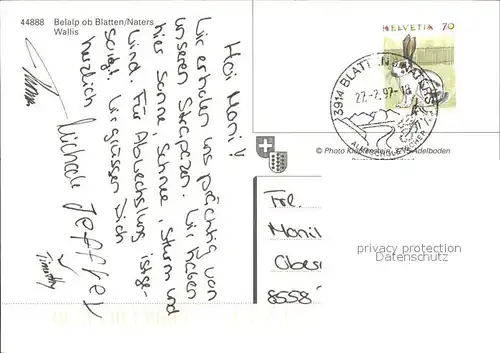 44888 Belalp ob Blatten/Naters
Wallis
Hoi Moni!
Wir erholen uns prächtig von
unseren Strapazen. Wir haben
hier Sonne, Schnee, Sturm und
Wind. Für Abwechslung ist ge-
sorgt. Wir grüssen Dich
herzlich
Michaela Jeffrey
Timothy
HELVETIA 70
3914 BLATTEN B. NATERS
27.-2.97-18
© Photo Klopfenstein, 3715 Adelboden
Frl.
Moni
Obers
8558
privacy protection
Datenschutz